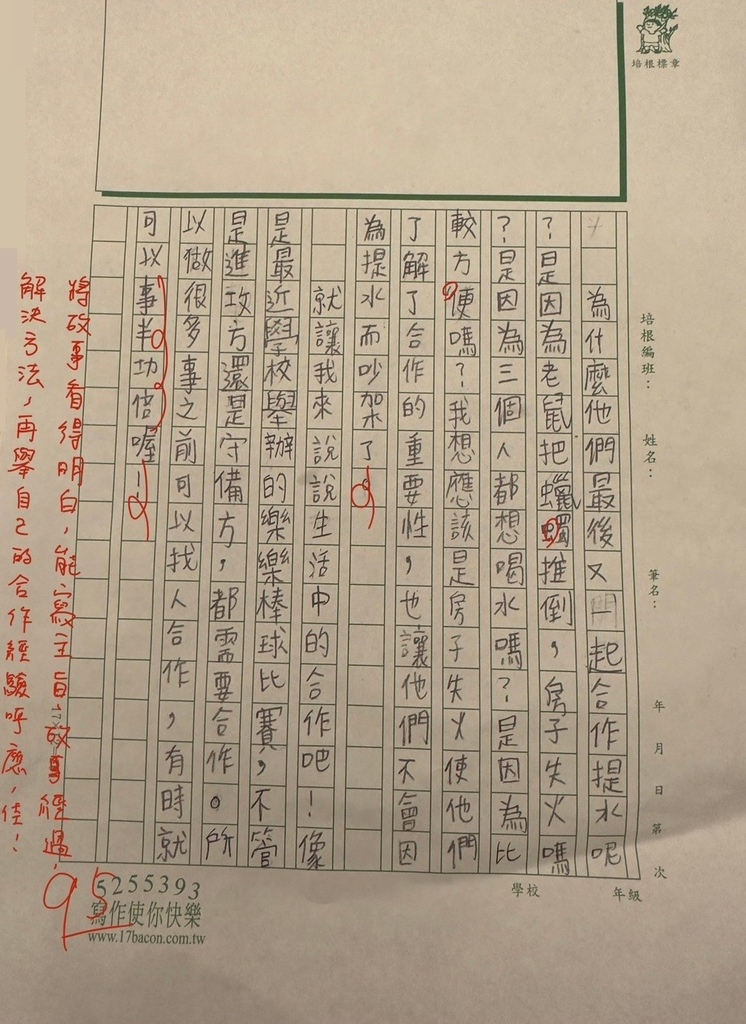 培根標章
培根編班：
姓名：
筆名：
年 月 日 第 次
為什麼他們最後又開起合作提水呢
？是因為老鼠把蠟蠋推倒，房子失火嗎
？是因為三個人都想喝水嗎？是因為比
較方便嗎？我想應該是房子失火使他們
了解了合作的重要性，也讓他們不會因
為提水而吵架了。
就讓我來說說生活中的合作吧！像
是最近學校舉辦的樂樂棒球比賽，不管
是進攻方還是守備方，都需要合作。所
以做很多事之前可以找人合作，有時就
可以事半功倍喔！
將故事看得明白，能寫主旨故事經過，
解決方法，再舉自己的合作經驗呼應，佳！
95
學校
年級
5255393
寫作使你快樂
www.17bacon.com.tw